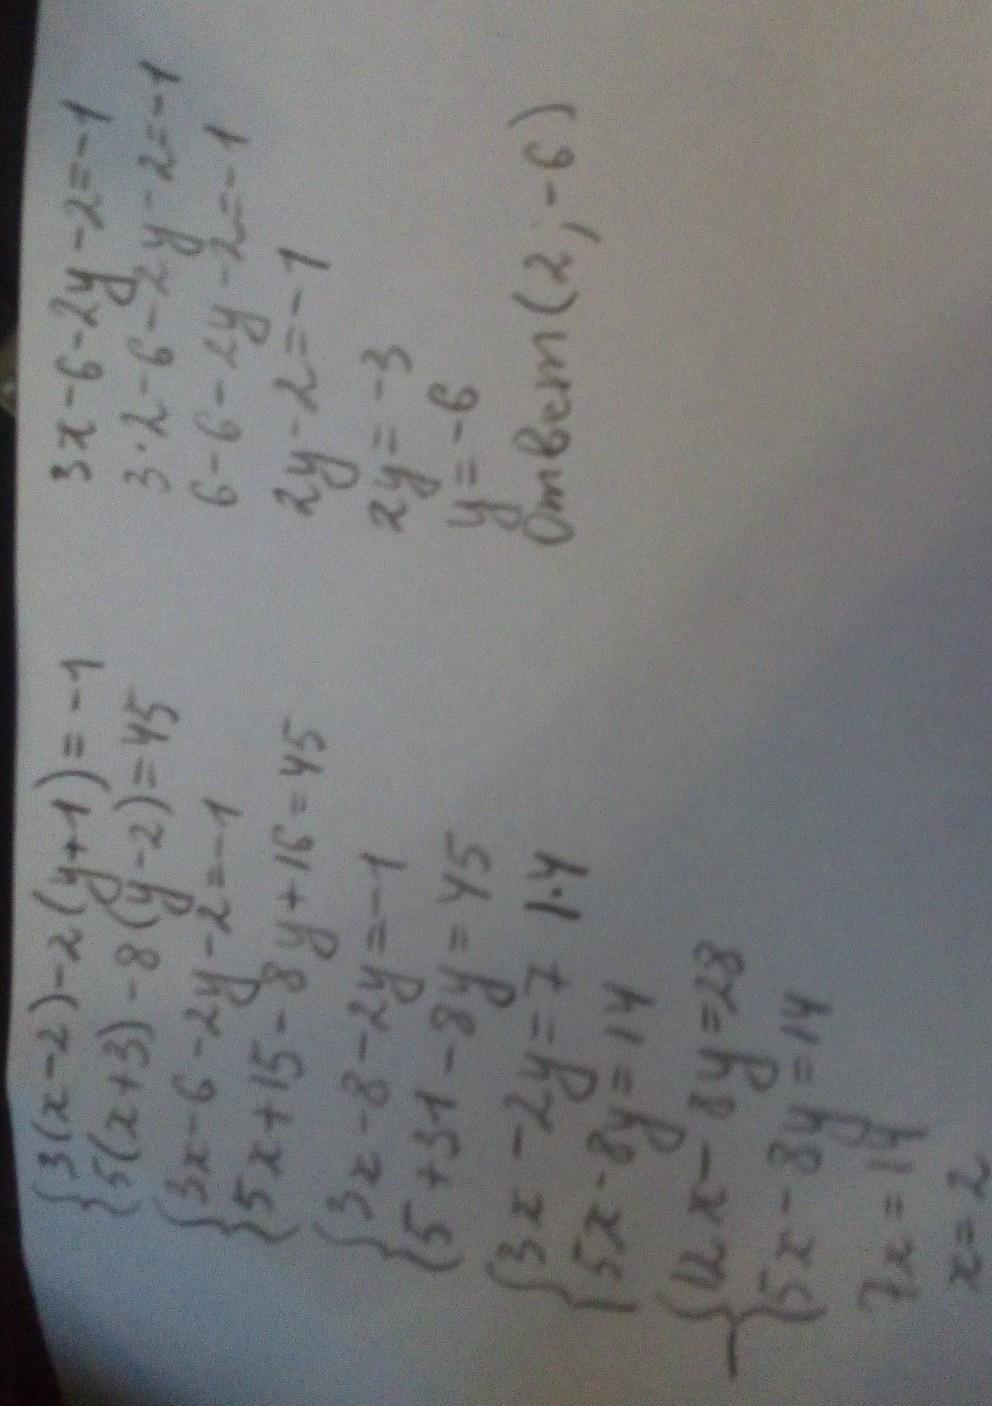 {3(x-2)-2(y+1)=-1
{5(x+3)-8(y-2)=45
{3x-6-2y-2=-1
{5x+15-8y+16=45
{3x-8-2y=-1
{5+31-8y=45
{3x-2y=7 |·4
{5x-8y=14
-{12x-8y=28
{5x-8y=14
7x=14
x=2
3x-6-2y-2=-1
3·2-6-2y-2=-1
6-6-2y-2=-1
2y-2=-1
2y=-3
y=-6
Ответ(2;-6)